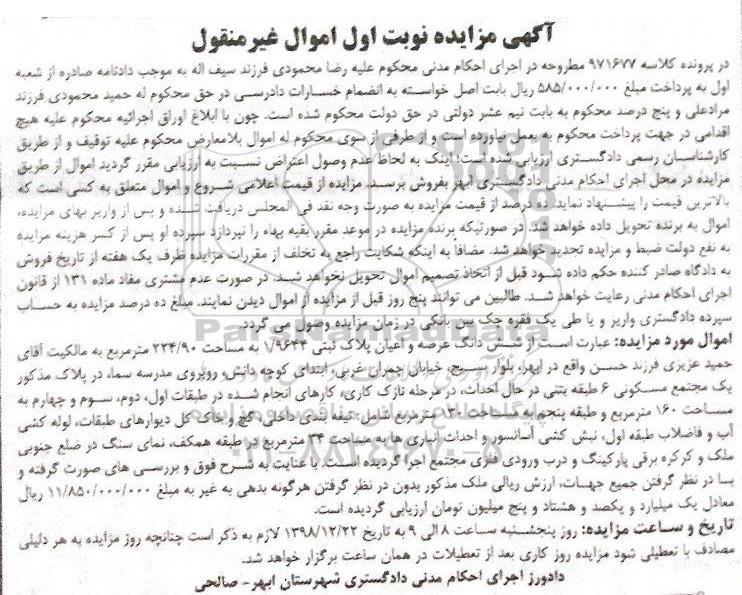 آگهی مزایده نوبت اول اموال غیرمنقول
در پرونده کلاسه ۹۷۱۶۷۷ مطروحه در اجرای احکام مدنی محکوم علیه رضا محمودی فرزند سیف اله به موجب دادنامه صادره از شعبه
اول به پرداخت مبلغ ۵۸۵/۰۰۰/۰۰۰ ریال بابت اصل خواسته به انضمام خسارات دادرسی در حق محکوم له حمید محمودی فرزند
مرادعلی و پنج درصد محکوم به بابت نیم عشر دولتی در حق دولت محکوم شده است. چون با ابلاغ اوراق اجرائیه محکوم علیه هیچ
اقدامی در جهت پرداخت محکوم به بعمل نیاورده است و از طرفی از سوی محکوم له اموال بلامعارض محکوم علیه توقیف و از طریق
کارشناسان رسمی دادگستری ارزیابی شده است؛ اینک به لحاظ عدم وصول اعتراض نسبت به ارزیابی مقرر گردید اموال از طریق
مزایده در محل اجرای احکام مدنی دادگستری ابهر بفروش برسد. مزایده از قیمت اعلامی شروع و اموال متعلق به کسی است که
بالاترین قیمت را پیشنهاد نماید ده درصد از قیمت مزایده به صورت وجه نقد فی المجلس دریافت شده و پس از واریز بهای مزایده،
اموال به برنده تحویل داده خواهد شد. در صورتیکه برنده مزایده در موعد مقرر بقیه بهاء را نپردازد سپرده او پس از کسر هزینه مزایده
به نفع دولت ضبط و مزایده تجدید خواهد شد. مضافاً به اینکه شکایت راجع به تخلف از مقررات مزایده ظرف یک هفته از تاریخ فروش
به دادگاه صادر کننده حکم داده شود قبل از اتخاذ تصمیم اموال تحویل نخواهد شد. در صورت عدم مشتری مفاد ماده ۱۳۱ از قانون
اجرای احکام مدنی رعایت خواهد شد. طالبین می توانند پنج روز قبل از مزایده از اموال دیدن نمایند. مبلغ ده درصد مزایده به حساب
سپرده دادگستری واریز و یا طی یک فقره چک بین بانکی در زمان مزایده وصول می گردد.
اموال مورد مزایده: عبارت است از شش دانگ عرصه و اعیان پلاک ثبتی ۱/۹۶۴۴ به مساحت ۲۲۴/۹۰ مترمربع به مالکیت آقای
حمید عزیزی فرزند حسن واقع در ابهر، بلوار بسیج، خیابان چمران غربی، ابتدای کوچه دانش، روبروی مدرسه سما، در پلاک مذکور
یک مجتمع مسکونی ۶ طبقه بتنی در حال احداث، در مرحله نازک کاری، کارهای انجام شده در طبقات اول، دوم، سوم و چهارم به
مساحت ۱۶۰ مترمربع و طبقه پنجم به مساحت ۱۳۰ مترمربع شامل: تیغه بندی داخلی، گچ و خاک کل دیوارهای طبقات، لوله کشی
آب و فاضلاب طبقه اول، نبش کشی آسانسور و احداث انباری ها به مساحت ۳۴ مترمربع در طبقه همکف، نمای سنگ در ضلع جنوبی
ملک و کرکره برقی پارکینگ و درب ورودی فلزی مجتمع اجرا گردیده است. با عنایت به شرح فوق و بررسی های صورت گرفته و
بسا در نظر گرفتن جمیع جهات، ارزش ریالی ملک مذکور بدون در نظر گرفتن هرگونه بدهی به غیر به مبلغ ۱۱/۸۵۰/۰۰۰/۰۰۰ ریال
معادل یک میلیارد و یکصد و هشتاد و پنج میلیون تومان ارزیابی گردیده است.
تاریخ و ساعت مزایده: روز پنجشنبه ساعت ۸ الی ۹ به تاریخ ۱۳۹۸/۱۲/۲۲ لازم به ذکر است چنانچه روز مزایده به هر دلیلی
مصادف با تعطیلی شود مزایده روز کاری بعد از تعطیلات در همان ساعت برگزار خواهد شد.
دادورز اجرای احکام مدنی دادگستری شهرستان ابهر- صالحی